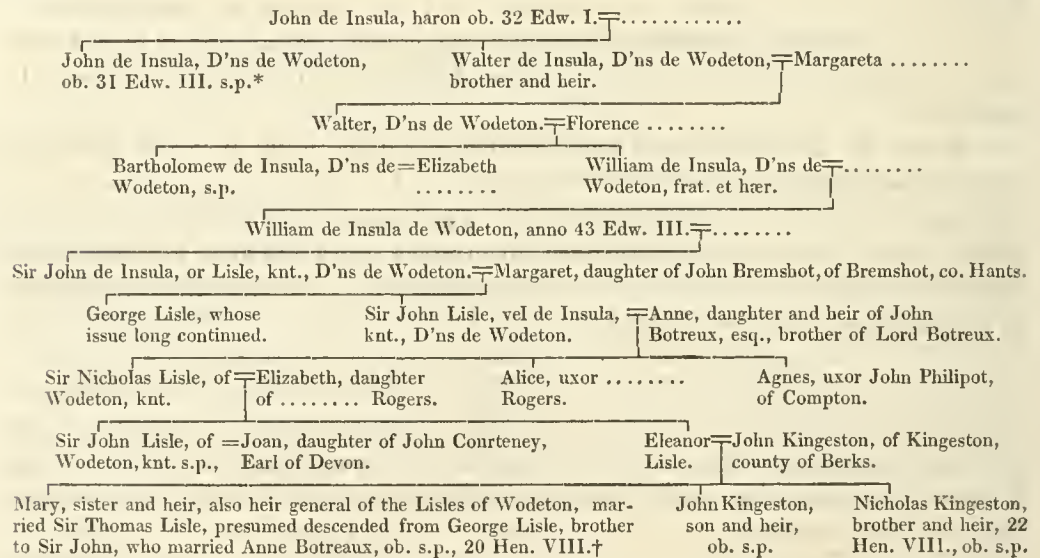 John de Insula, haron ob. 32 Edw. I.=............
John de Insula, D'ns de Wodeton,
ob. 31 Edw. III. s.p.*
Walter de Insula, D'ns de Wodeton,=Margareta ........
brother and heir.
Walter, D'ns de Wodeton.=Florence ........
Bartholomew de Insula, D'ns de=Elizabeth
Wodeton, s.p. ........
William de Insula, D'ns de=........
Wodeton, frat. et hær.
William de Insula de Wodeton, anno 43 Edw. III.=........
Sir John de Insula, or Lisle, knt., D'ns de Wodeton.=Margaret, daughter of John Bremshot, of Bremshot, co. Hants.
George Lisle, whose
issue long continued.
Sir John Lisle, vel de Insula, =Anne, daughter and heir of John
knt., D'ns de Wodeton. Botreux, esq., brother of Lord Botreux.
Sir Nicholas Lisle, of=Elizabeth, daughter
Wodeton, knt. of ........ Rogers.
Alice, uxor ........
Rogers.
Agnes, uxor John Philipot,
of Compton.
Sir John Lisle, of =Joan, daughter of John Courteney,
Wodeton, knt. s.p., Earl of Devon.
Eleanor=John Kingeston, of Kingeston,
Lisle. county of Berks.
Mary, sister and heir, also heir general of the Lisles of Wodeton, mar-
ried Sir Thomas Lisle, presumed descended from George Lisle, brother
to Sir John, who married Anne Botreaux, ob. s.p., 20 Hen. VIII.†
John Kingeston,
son and heir,
ob. s.p.
Nicholas Kingeston,
brother and heir, 22
Hen. VIII., ob. s.p.